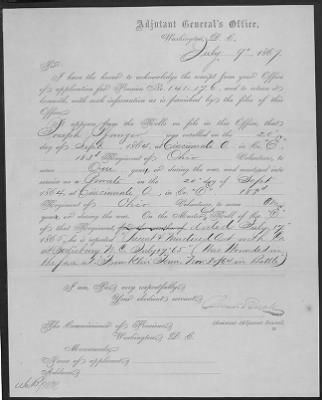 Adjutant General's Office,
Washington, D. C.
July 9th 1867
Sir:
I have the honor to acknowledge the receipt from your Office
of application for Pension No. 141.576, and to return it
herewith, with such information as is furnished by the files of this
Office.
It appears from the Rolls on file in this Office, that
Joseph was enrolled on the 20th
day of Sept, 1864, at Cincinnati O. in Co. E,
183d Regiment of Ohio Volunteers, to
serve One year, or during the war, and mustered into
service as a Private on the 20th day of Sept
1864, at Cincinnati O., in Co. E, 183d
Regiment of Ohio Volunteers, to serve One
year, or during the war. On the Muster Roll of Co. E,
of that Regiment, dated July 17
1865, he is reported Present Mustered Out with Co
at Salisbury N.C. July 17/65. Was Wounded in
the face at Franklin Tenn. Nov 30/64 in Battle
I am, Sir, very respectfully,
Your obedient servant,
Assistant Adjutant General.
The Commissioner of Pensions,
Washington, D. C.
Memoranda:
Name of applicant
Address